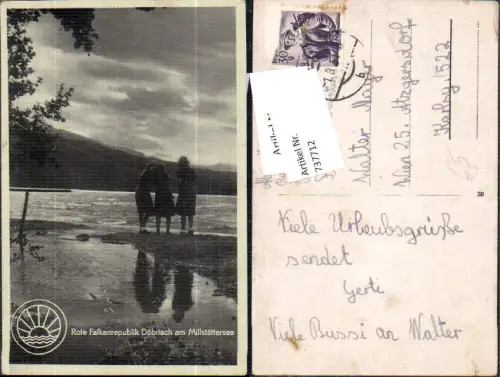 Rote Falkenrepublik Döbriach am Millstättersee
30
Artikel Nr.
737712
Walter Mayer
Wien 25. Atzgersdorf
30
Viele Urlaubsgrüße
sendet
Gerti
Viele Bussi an Walter